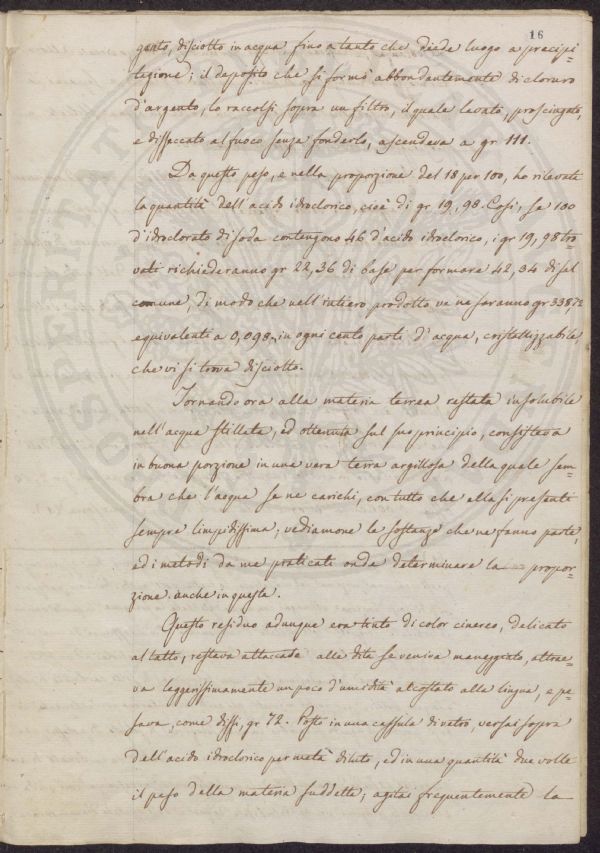 16
gento, disciolto in acqua, fino a tanto che diede luogo a precipi-
tazione; il deposito che si formò abbondantemente di cloruro
d'argento, lo raccolsi sopra un filtro, il quale lavato, prosciugato,
e disseccato al fuoco senza fonderlo, ascendeva a gr 111.
Da questo peso, e nella proporzione del 18 per 100, ho rilevato
la quantità dell'acido idroclorico, cioè di gr 19,98. Così, se 100
d'idroclorato di soda contengono 46 d'acido idroclorico, i gr 19,98 tro
vati richiederanno gr 22,36 di base per formare 42,34 di sal
comune, di modo che nell'intiero prodotto ve ne saranno gr 338,72
equivalenti a 0,098, in ogni cento parti d'acqua, cristallizzabile,
che vi si trova disciolto.
Tornando ora alla materia terrea restata insolubile
nell'acqua stillata, ed ottenuta sul suo principio, consisteva
in buona porzione in una vera terra argillosa della quale sem-
bra che l'acqua se ne carichi, con tutto che ella si presenti
sempre limpidissima; vediamone le sostanze che ne fanno parte,
ed i metodi da me praticati onde determinare la propor-
zione anche in questa.
Questo residuo adunque era tinto di color cinereo, delicato
al tatto, restava attaccato alle dita se veniva maneggiato, attrae-
va leggerissimamente un poco d'umidità accostato alla lingua, e pe-
sava, come dissi, gr 72. Posto in una cassula di vetro, versai sopra
dell'acido idroclorico per metà diluto, ed in una quantità due volte
il peso della materia suddetta; agitai frequentemente la